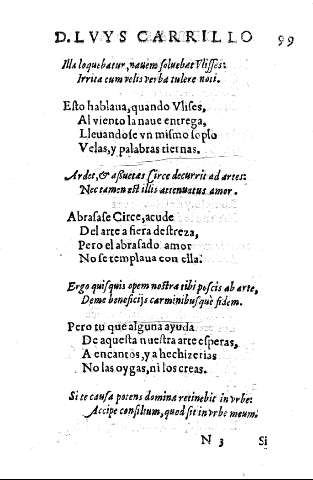 D. LVYS CARRILLO 99
Illa loquebatur, nauem soluebat Vlisses:
Irrita cum velis verba tulere noti.
Esto hablaua, quando Vlises,
Al viento la naue entrega,
Lleuandose vn mismo soplo
Velas, y palabras tiernas.
Ardet, & assuetas Circe decurrit ad artes:
Nec tamen est illis attenuatus amor.
Abrasase Circe, acude
Del arte a fiera destreza,
Pero el abrasado amor
No se templaua con ella.
Ergo quisquis opem nostra tibi poscis ab arte,
Deme beneficijs carminibusque fidem.
Pero tu que alguna ayuda
De aquesta nuestra arte esperas,
A encantos, y a hechizerias
No las oygas, ni los creas.
Si te causa potens domina retinebit in vrbe:
Accipe consilium, quod sit in vrbe meum.
N 3 Si